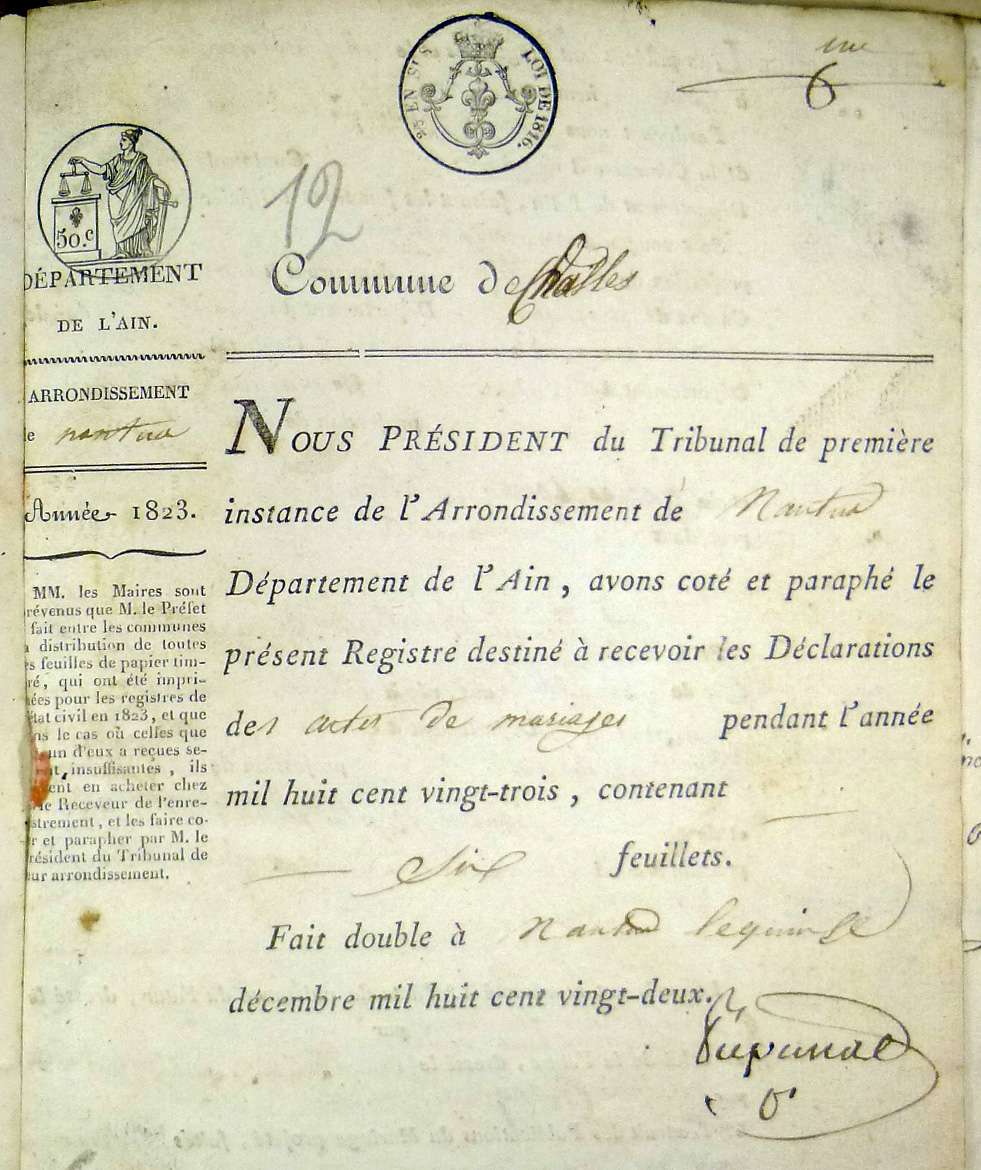 25 EN SUS
LOI DE 1816.
6
12
50.c
DÉPARTEMENT
DE L'AIN.
ARRONDISSEMENT
de nantua
Année 1823.
MM. les Maires sont
révenus que M. le Préfet
fait entre les communes
a distribution de toutes
es feuilles de papier tim-
ré, qui ont été impri-
ées pour les registres de
état civil en 1823, et que
ns le cas où celles que
un d'eux a reçues se-
t insuffisantes, ils
ent en acheter chez
le Receveur de l'enre-
strement, et les faire co-
r et parapher par M. le
résident du Tribunal de
eur arrondissement.
Commune de Challes
NOUS PRÉSIDENT du Tribunal de première
instance de l'Arrondissement de Nantua
Département de l'Ain, avons coté et paraphé le
présent Registre destiné à recevoir les Déclarations
des actes de mariages pendant l'année
mil huit cent vingt-trois, contenant
six feuillets.
Fait double à nantua le quinze
décembre mil huit cent vingt-deux.